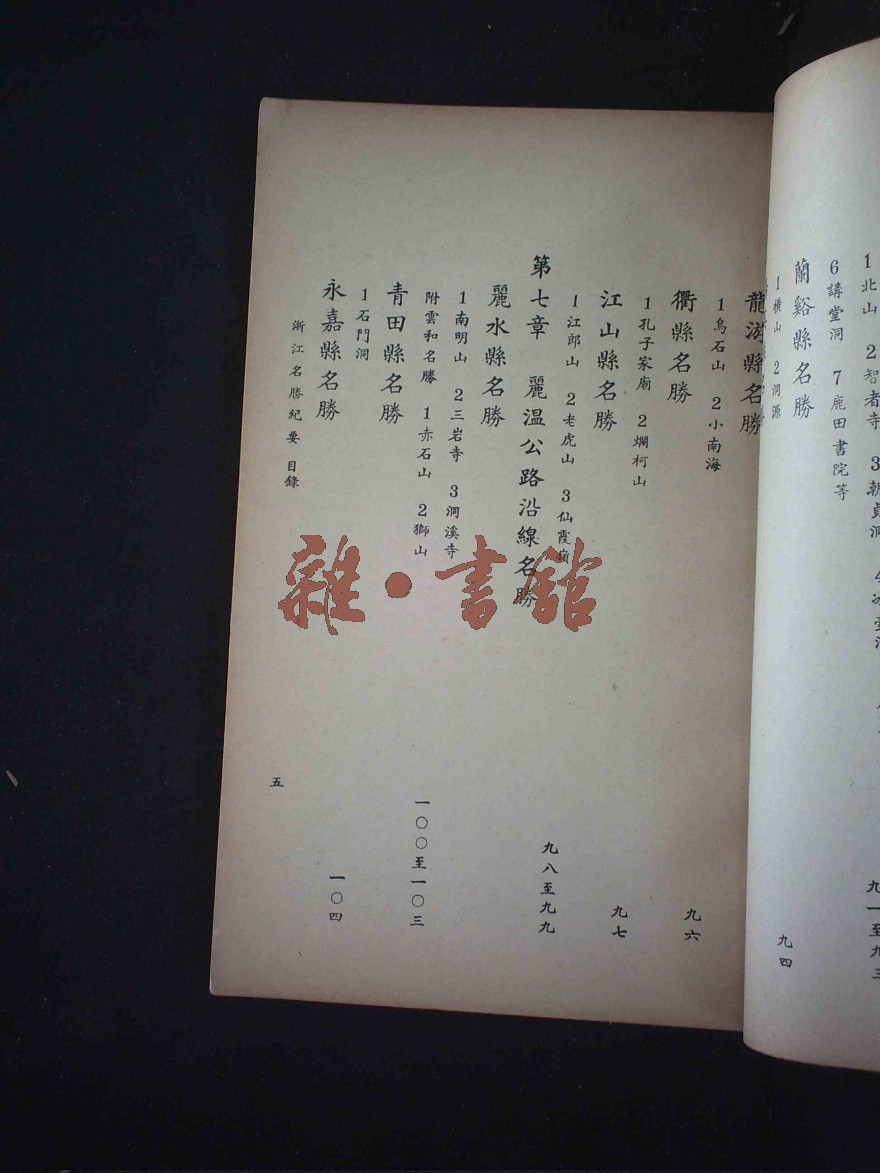 1北山 2智者寺 3朝眞洞
6講堂洞 7鹿田書院等 九一至九三
蘭谿縣名勝
1橫山 2洞源 九四
龍游縣名勝
1烏石山 2小南海 九六
衢縣名勝
1孔子家廟 2爛柯山 九七
江山縣名勝
1江郎山 2老虎山 3仙霞嶺 九八至九九
第七章 麗溫公路沿線名勝
麗水縣名勝
1南明山 2三岩寺 3洞溪寺
附雲和名勝 1赤石山 2獅山 一〇〇至一〇三
青田縣名勝
1石門洞 一〇四
永嘉縣名勝
浙江名勝紀要 目錄 五
雜·書館